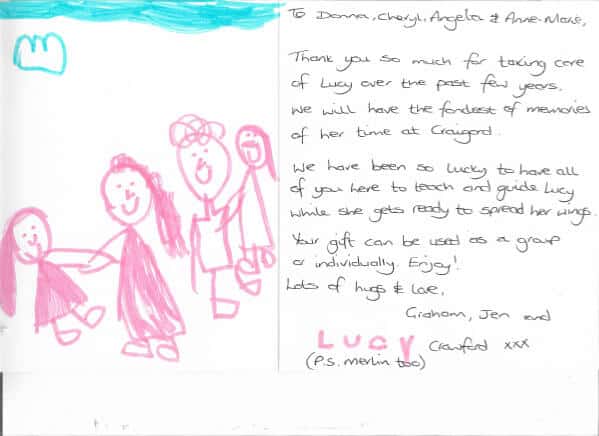 To Donna, Cheryl, Angela & Anne-Marie,
Thank you so much for taking care
of Lucy over the past few years.
We will have the fondest of memories
of her time at Craigard.
We have been so lucky to have all
of you here to teach and guide Lucy
while she gets ready to spread her wings.
Your gift can be used as a group
or individually. Enjoy!
Lots of hugs & love,
Graham, Jen and
LUCY Crawford xxx
(P.S. merlin too)